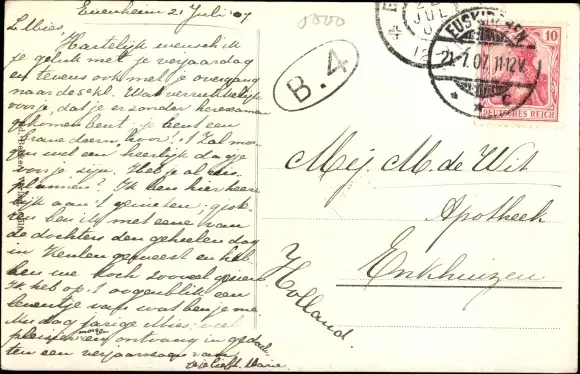 Euenheim 21 Juli '07
L. Mies,
Hartelijk wensch ik
je geluk met je verjaardag
en tevens ook met je overgang
naar de 5e kl. Wat verrukkelijk
voor je, dat je er zonder herexamen
gekomen bent; je bent een
brave deern, hoor! 't Zal mor-
gen wel een heerlijk dagje
voor je zijn. Heb je al
plannen? Ik ben hier heer-
lijk aan 't genieten; gister
ben ik met eene van
de dochters den geheelen dag
in Keulen geweest en heb-
ben we toch zooveel gezien
Ik heb op 't oogenblik een
leventje van wat ben je me
Nu dag jarige Mies: veel
plezier morgen en ontvang in gedach-
ten een verjaarszoen van
je liefh. Marie.
5000
B.4
22
JUL
12
EUSKIRCHEN
21.7.07. 11-12V.
* * c
10
DEUTSCHES REICH
Mej. M. de Wit
Apotheek
Enkhuizen
Holland.